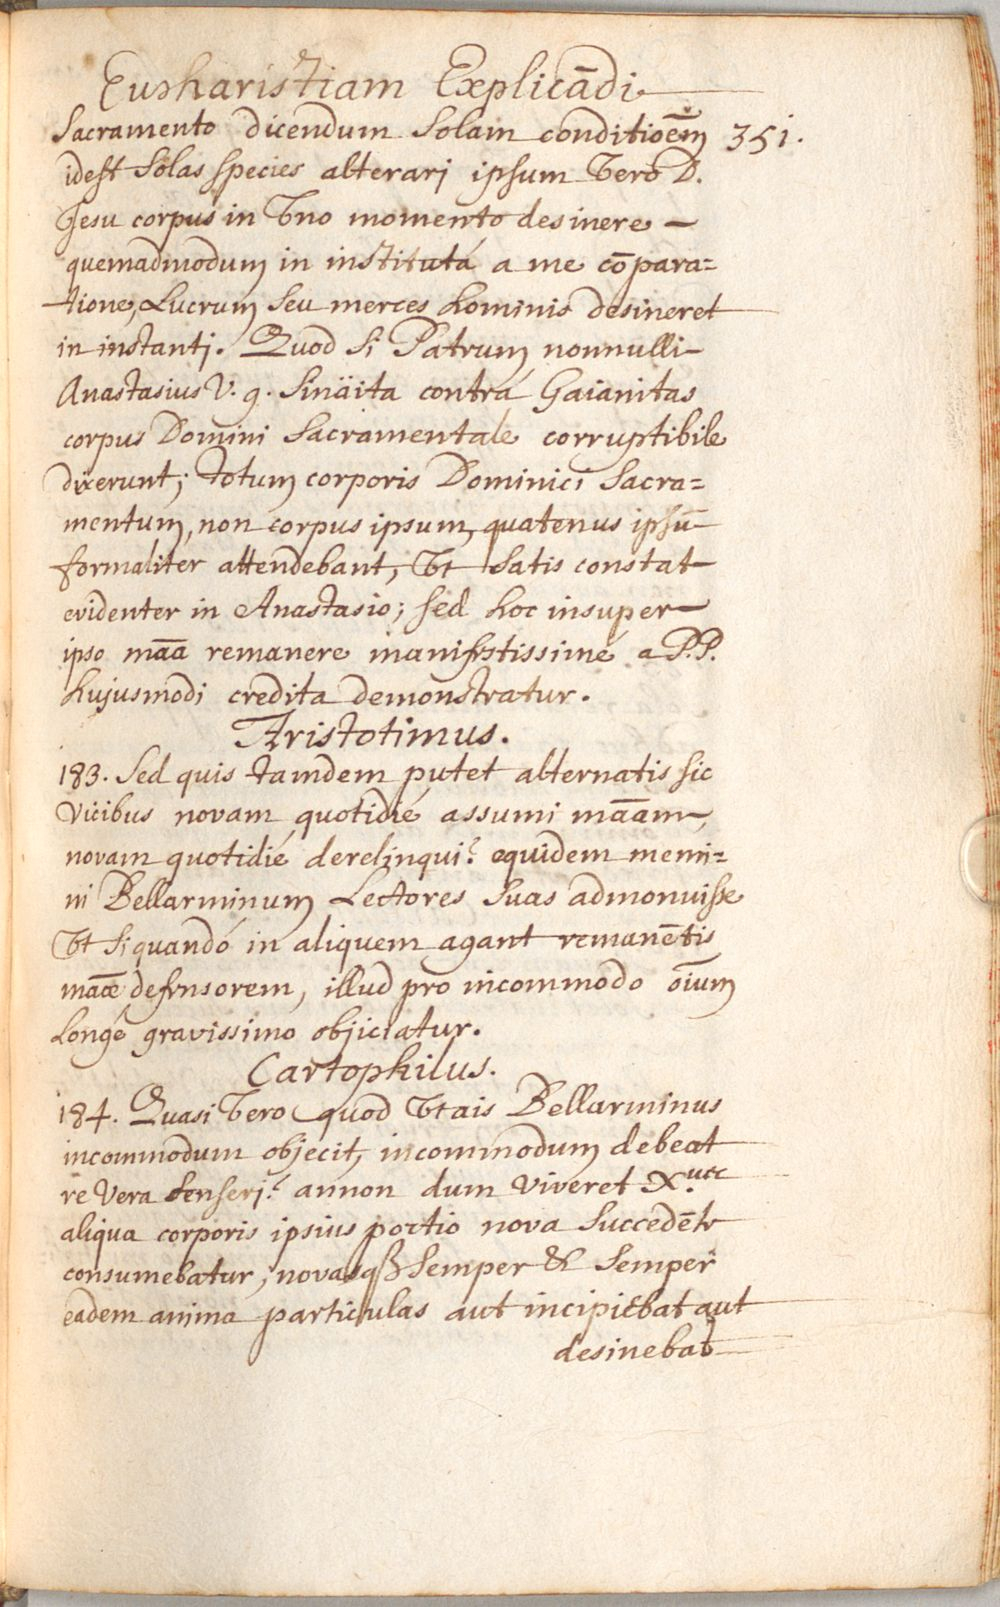 Eucharistiam Explicādi
Sacramento dicendum Solam conditioēm 351.
idest Solas species alterari ipsum vero D.
Jesu corpus in vno momento desinere
quemadmodum in institutá a me cōpara=
tione, Lucrum seu merces hominis desineret
in instanti. Quod Si Patrum nonnulli
Anastasius V. g. Sinäita contrá Gaianitas
corpus Domini Sacramentale corruptibile
dixerunt; totum corporis Dominici Sacra=
mentum, non corpus ipsum, quatenus ipsū
formaliter attendebant, vt satis constat
evidenter in Anastasio; sed hoc insuper
ipso māa remanere manifestissimé a P.P.
hujusmodi credita demonstratur.
Aristotimus.
183. Sed quis tamdem putet alternatis sic
vicibus novam quotidié assumi māam,
novam quotidié derelinqui? equidem memi=
ni Bellarminum Lectores Suas admonuisse
vt Siquandó in aliquem agant remanētis
māæ defensorem, illud pro incommodo oīum
Longé gravissimo objiciatur.
Cartophilus.
184. Quasi vero quod vt ais Bellarminus
incommodum objecit, incommodum debeat
re vera Senseri? annon dum viveret X.
aliqua corporis ipsius portio nova Succedēte
consumebatur, novasqꝫ Semper & Semper
eadem anima particulas aut incipiebat aut
desinebat